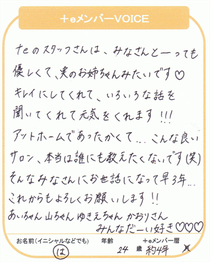 +eメンバーVOICE
+eのスタッフさんは、みなさんと一っても
優しくて、実のお姉ちゃんみたいです♡
キレイにしてくれて、いろいろな話を
聞いてくれて元気をくれます!!!
アットホームであったかくて…こんな良い
サロン、本当は誰にも教えたくないです(笑)
そんなみなさんにお世話になって早3年…
これからもよろしくお願いします!!
あいちゃん 山ちゃん ゆきえちゃん かおりさん
みんなだーい好き♡♡♡
お名前(イニシャルなどでも) 年齢 +eメンバー暦
は 24歳 約4年